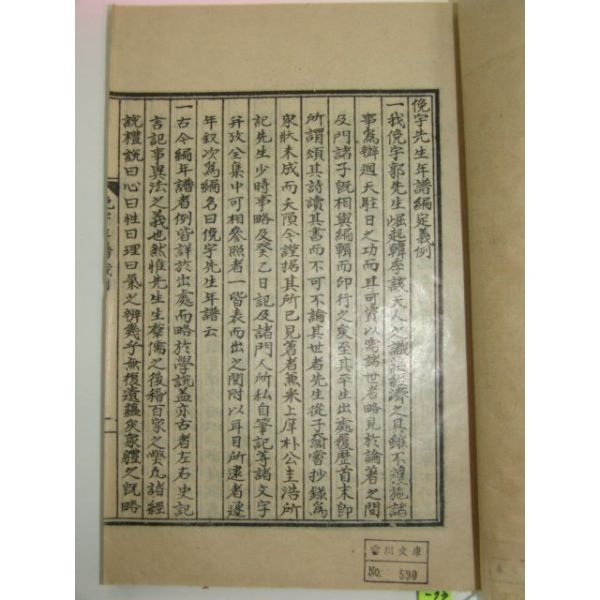 俛宇先生年譜編定義例
一我俛宇郭先生崛起韓季該天人之識蘊經濟之具雖不獲施諸
事爲辦週天駐日之功而其可資以需諸世者略見於論著之間
及門諸子旣相與編輯而印行之矣至其平生出處履歷首末卽
所謂頌其詩讀其書而不可不論其世者先生從子奫嘗抄錄爲
家狀未成而夭隕今謹据其所已見著者兼采上庠朴公圭浩所
記先生少時事略及癸乙日記及諸門人所私自筆記等諸文字
幷攷全集中可相參照者一皆表而出之間附以耳目所逮者逐
年叙次爲編名曰俛宇先生年譜云
一古今編年譜者例皆詳於出處而略於學說盖亦古者左右史記
言記事異法之義也然惟先生生羣儒之後稽百家之
諸經
說禮說曰心曰性曰理曰氣之辨幾乎無復遺蘊矣家體之旣略
俛宇年譜
一
雷川文庫
No. 590